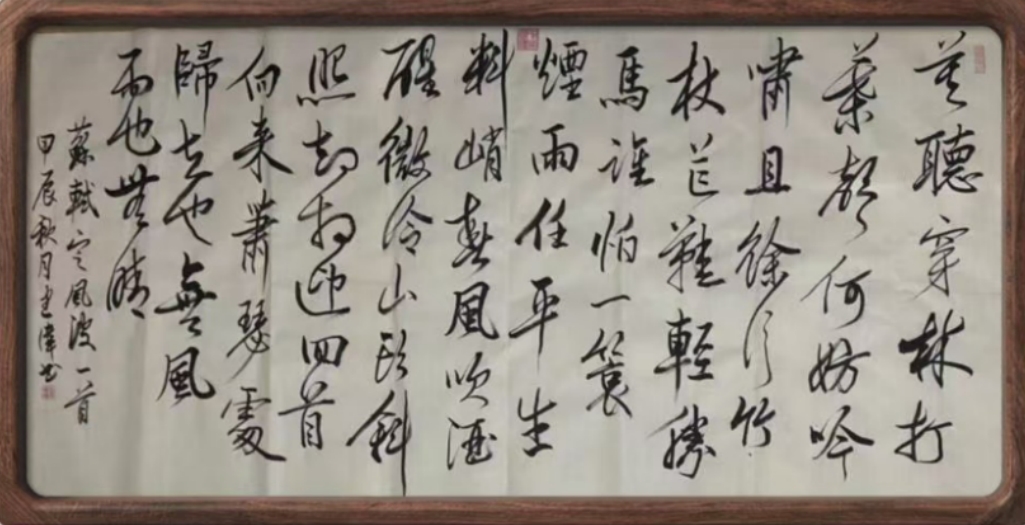 莫聽穿林打
葉聲何妨吟
嘯且徐行竹
杖芒鞋輕勝
馬誰怕一蓑
煙雨任平生
料峭春風吹酒
醒微冷山頭斜
照却相迎回首
向来蕭瑟處
歸去也無風
雨也無晴
蘇軾定風波一首
甲辰秋月 書